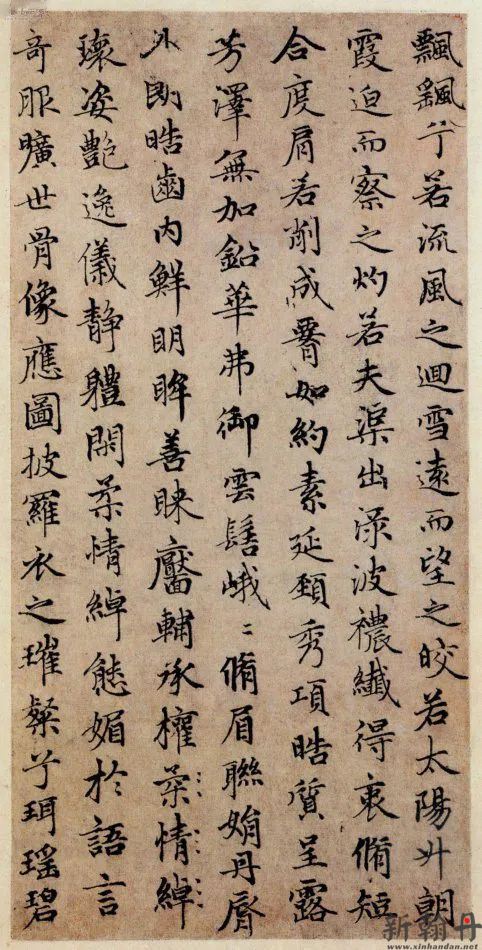 飄飖兮若流風之迴雪遠而望之皎若太陽升朝
霞迫而察之灼若夫渠出淥波禯纖得衷脩短
合度肩若削成署如約素延頸秀項皓質呈露
芳澤無加鉛華弗御雲髻峨〻脩眉聯娟丹脣
外朗皓齒內鮮明眸善睞靨輔承權柔情綽
瓌姿艷逸儀靜體閑柔情綽態媚於語言
奇服曠世骨像應圖披羅衣之璀粲兮珥瑤碧
新翰丹
www.xinhandan.net